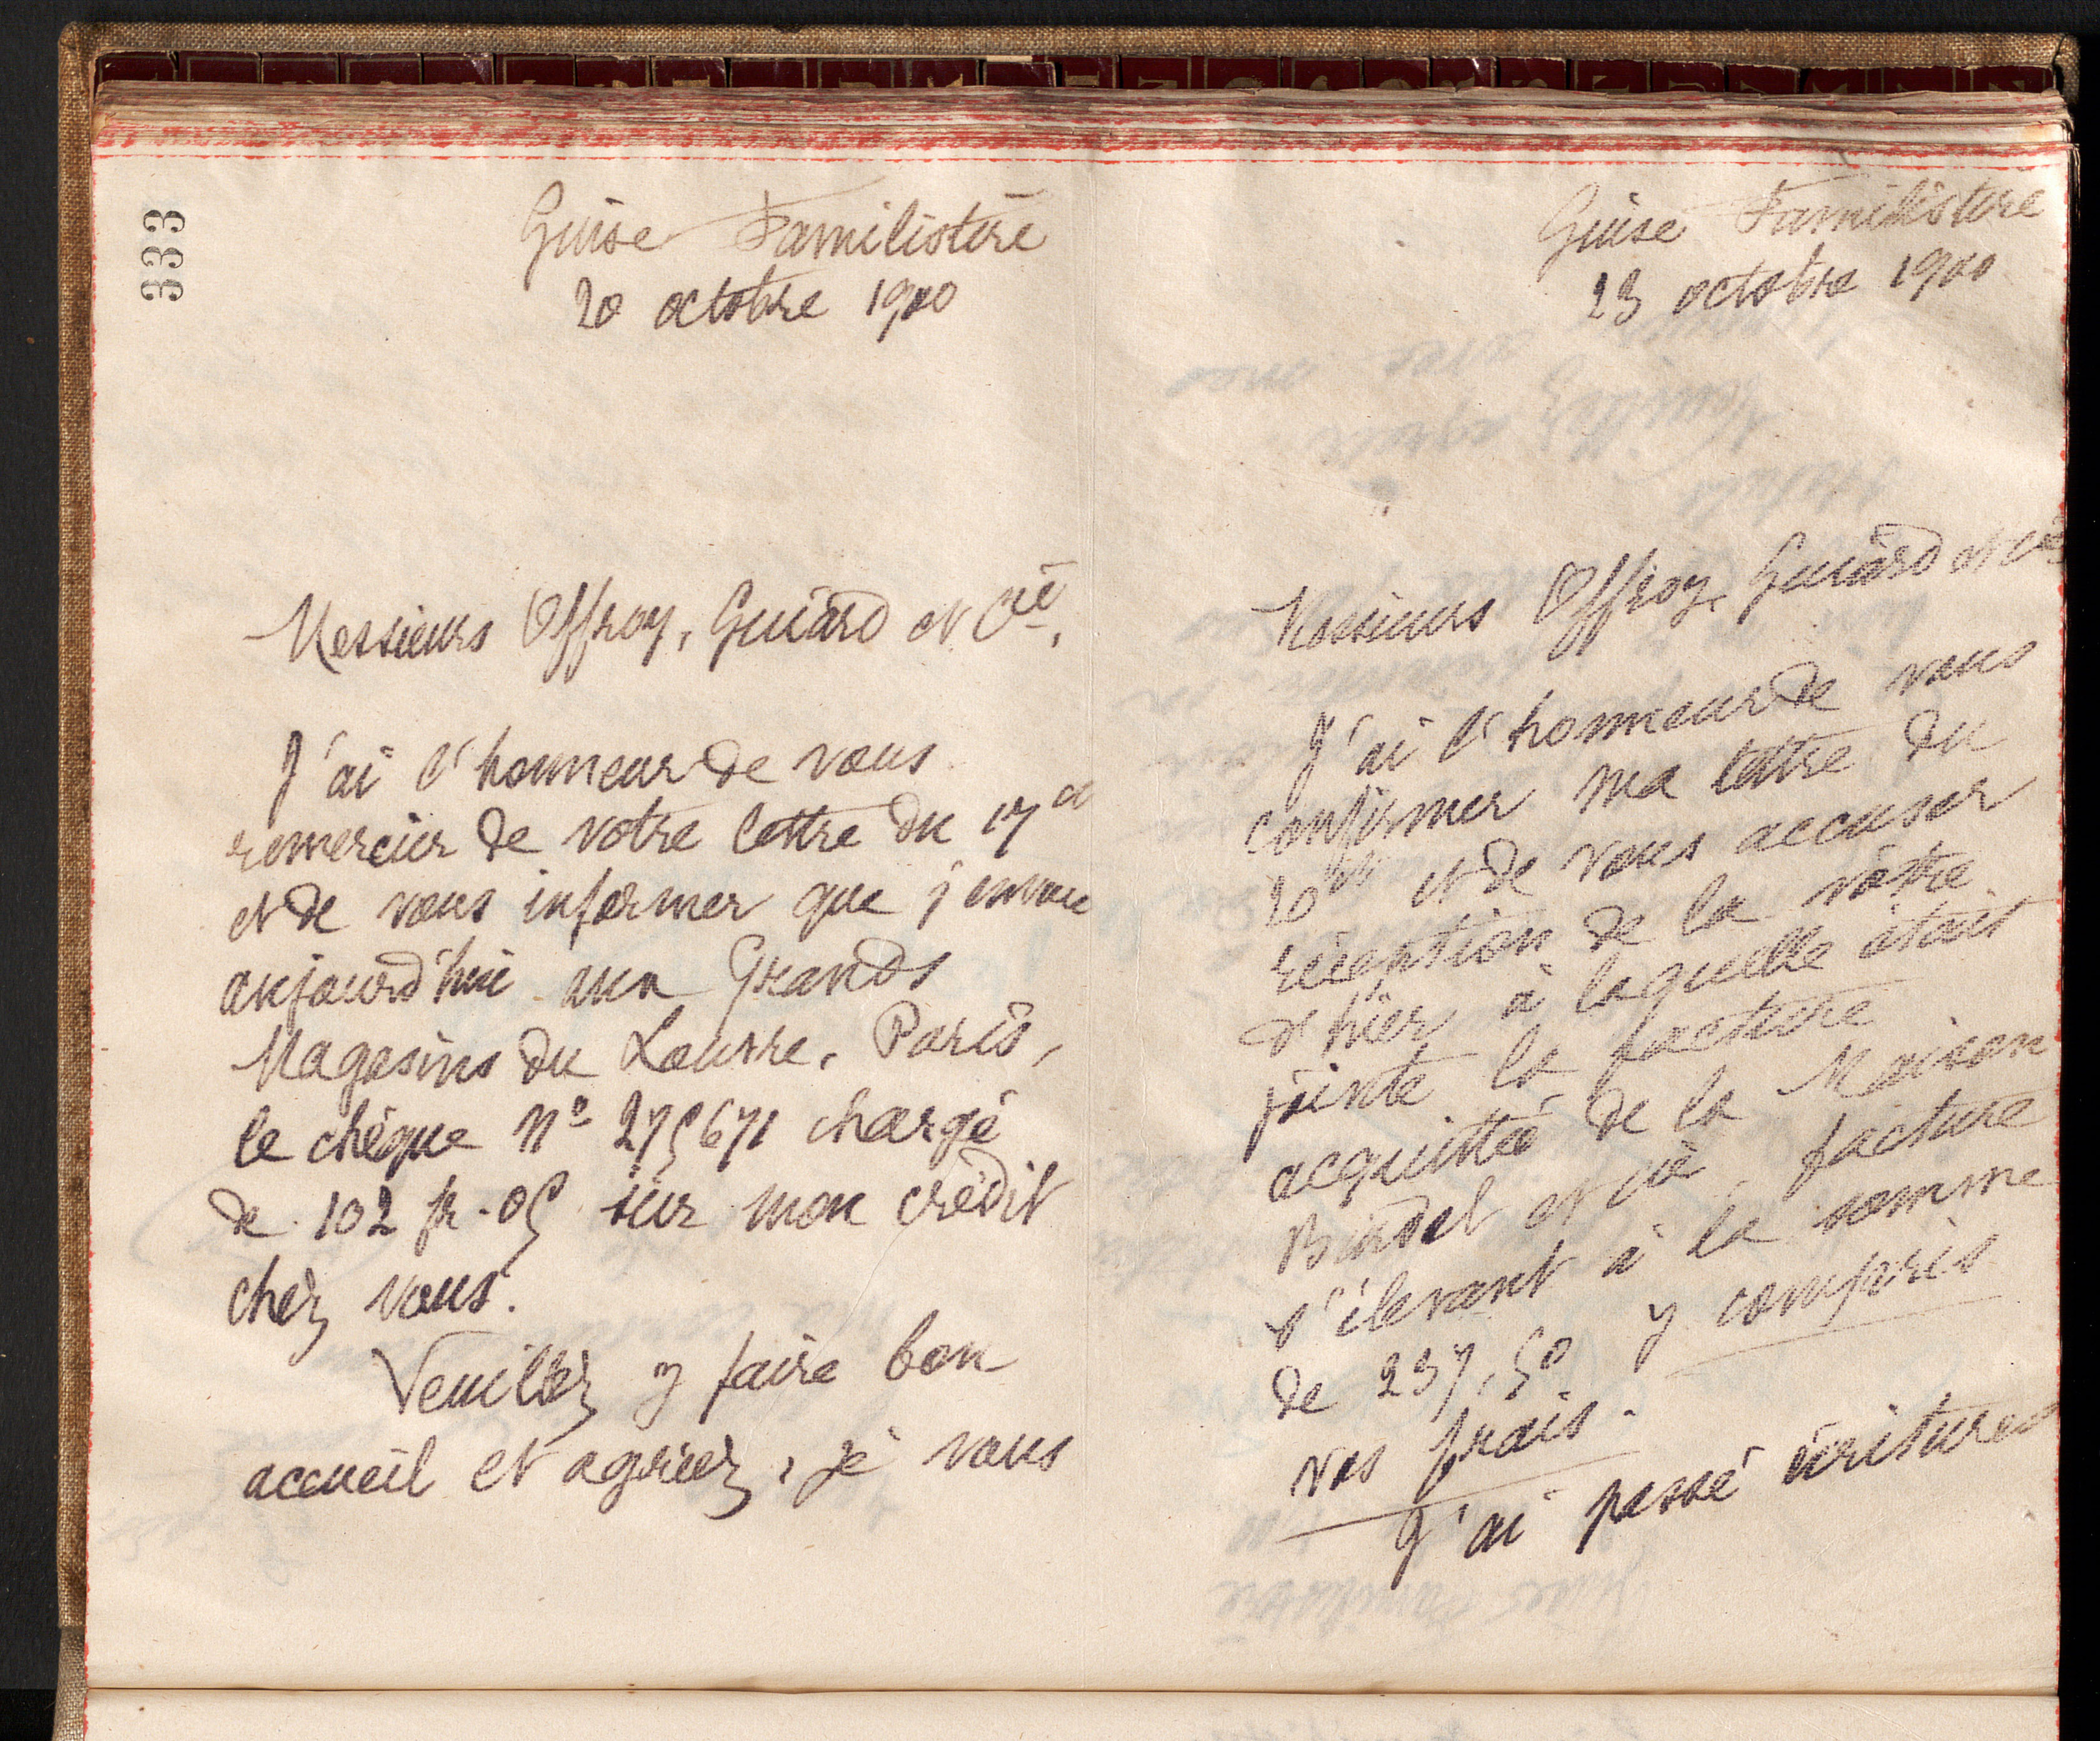 333
Guise Familistère
20 octobre 1900
Messieurs Offroy, Guiard et Cie,
J'ai l'honneur de vous
remercier de votre lettre du 17 ct
et de vous informer que j'envoie
aujourd'hui aux Grands
Magasins du Louvre, Paris,
le chèque No 275671 chargé
de 102 fr. 05 sur mon crédit
chez vous.
Veuillez y faire bon
accueil et agréer, je vous
Guise Familistère
23 octobre 1900
Messieurs Offroy, Guiard et Cie
J'ai l'honneur de vous
confirmer ma lettre du
20 ct et de vous accuser
réception de la vôtre
d'hier à laquelle était
jointe la facture
acquittée de la Maison
et Cie, facture
s'élevant à la somme
de 237,50 y compris
vos frais.
J'ai passé écritures